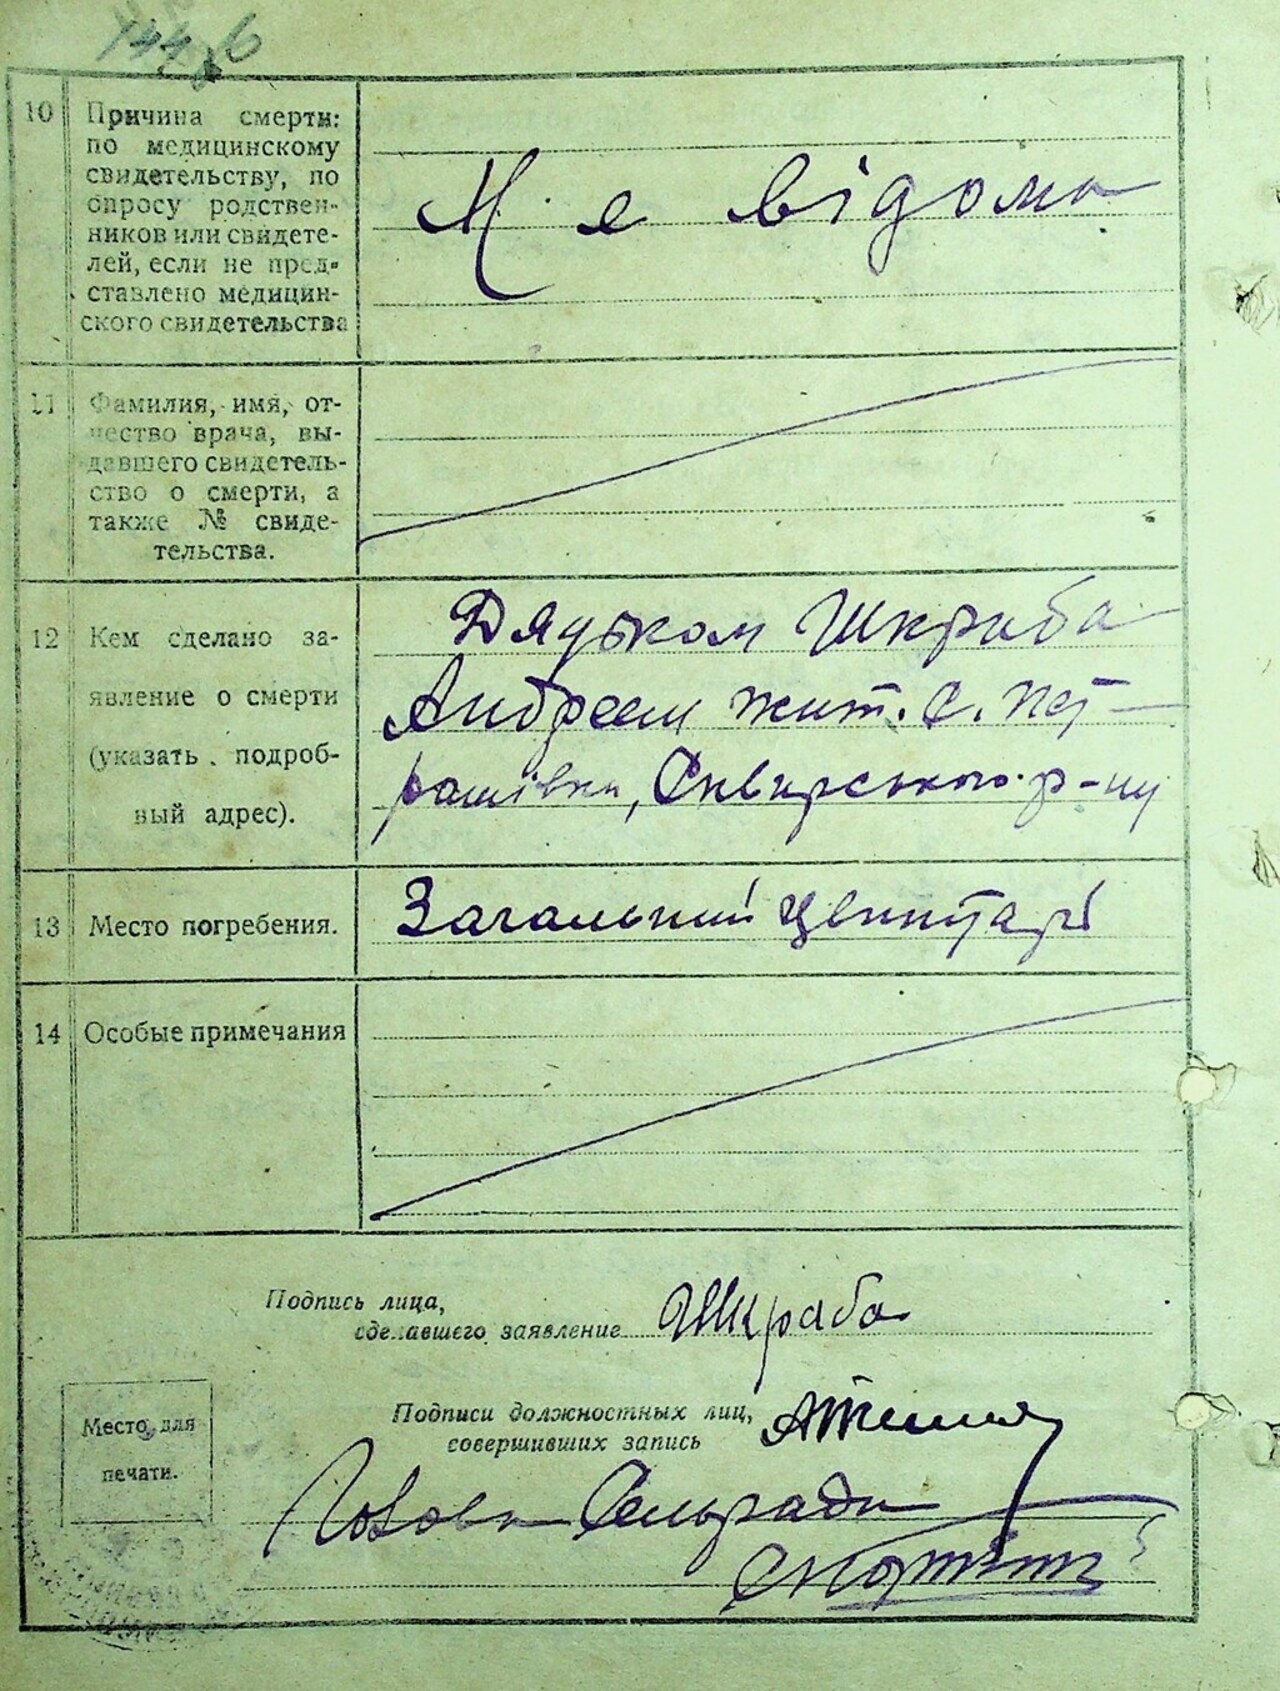 10 Причина смерти:
по медицинскому
свидетельству, по
опросу родствен-
ников или свидете-
лей, если не пред-
ставлено медицин-
ского свидетельства
Не відома
11 Фамилия, имя, от-
чество врача, вы-
давшего свидетель-
ство о смерти, а
также № свиде-
тельства.
12 Кем сделано за-
явление о смерти
(указать подроб-
ный адрес).
Дядьком Шкраба
Андреем жит. с. Пет-
рашівка, Сквирського р-ну
13 Место погребения.
Загальний цвинтарь
14 Особые примечания
Подпись лица,
сделавшего заявление Шкраба
Подписи должностных лиц,
совершивших запись
Место для
печати.
Голова Сельради